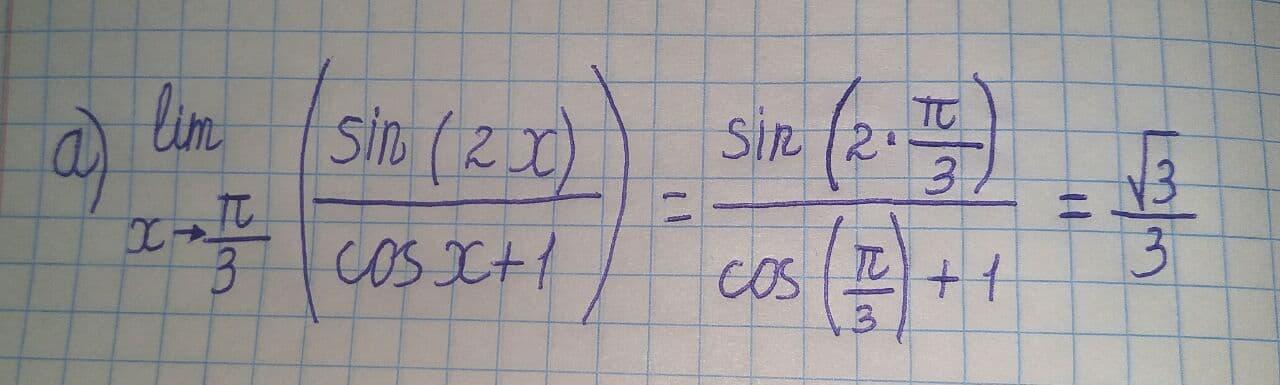 a) lim x→π/3 (sin(2x)/(cos x+1)) = sin(2·π/3)/(cos(π/3)+1) = √3/3